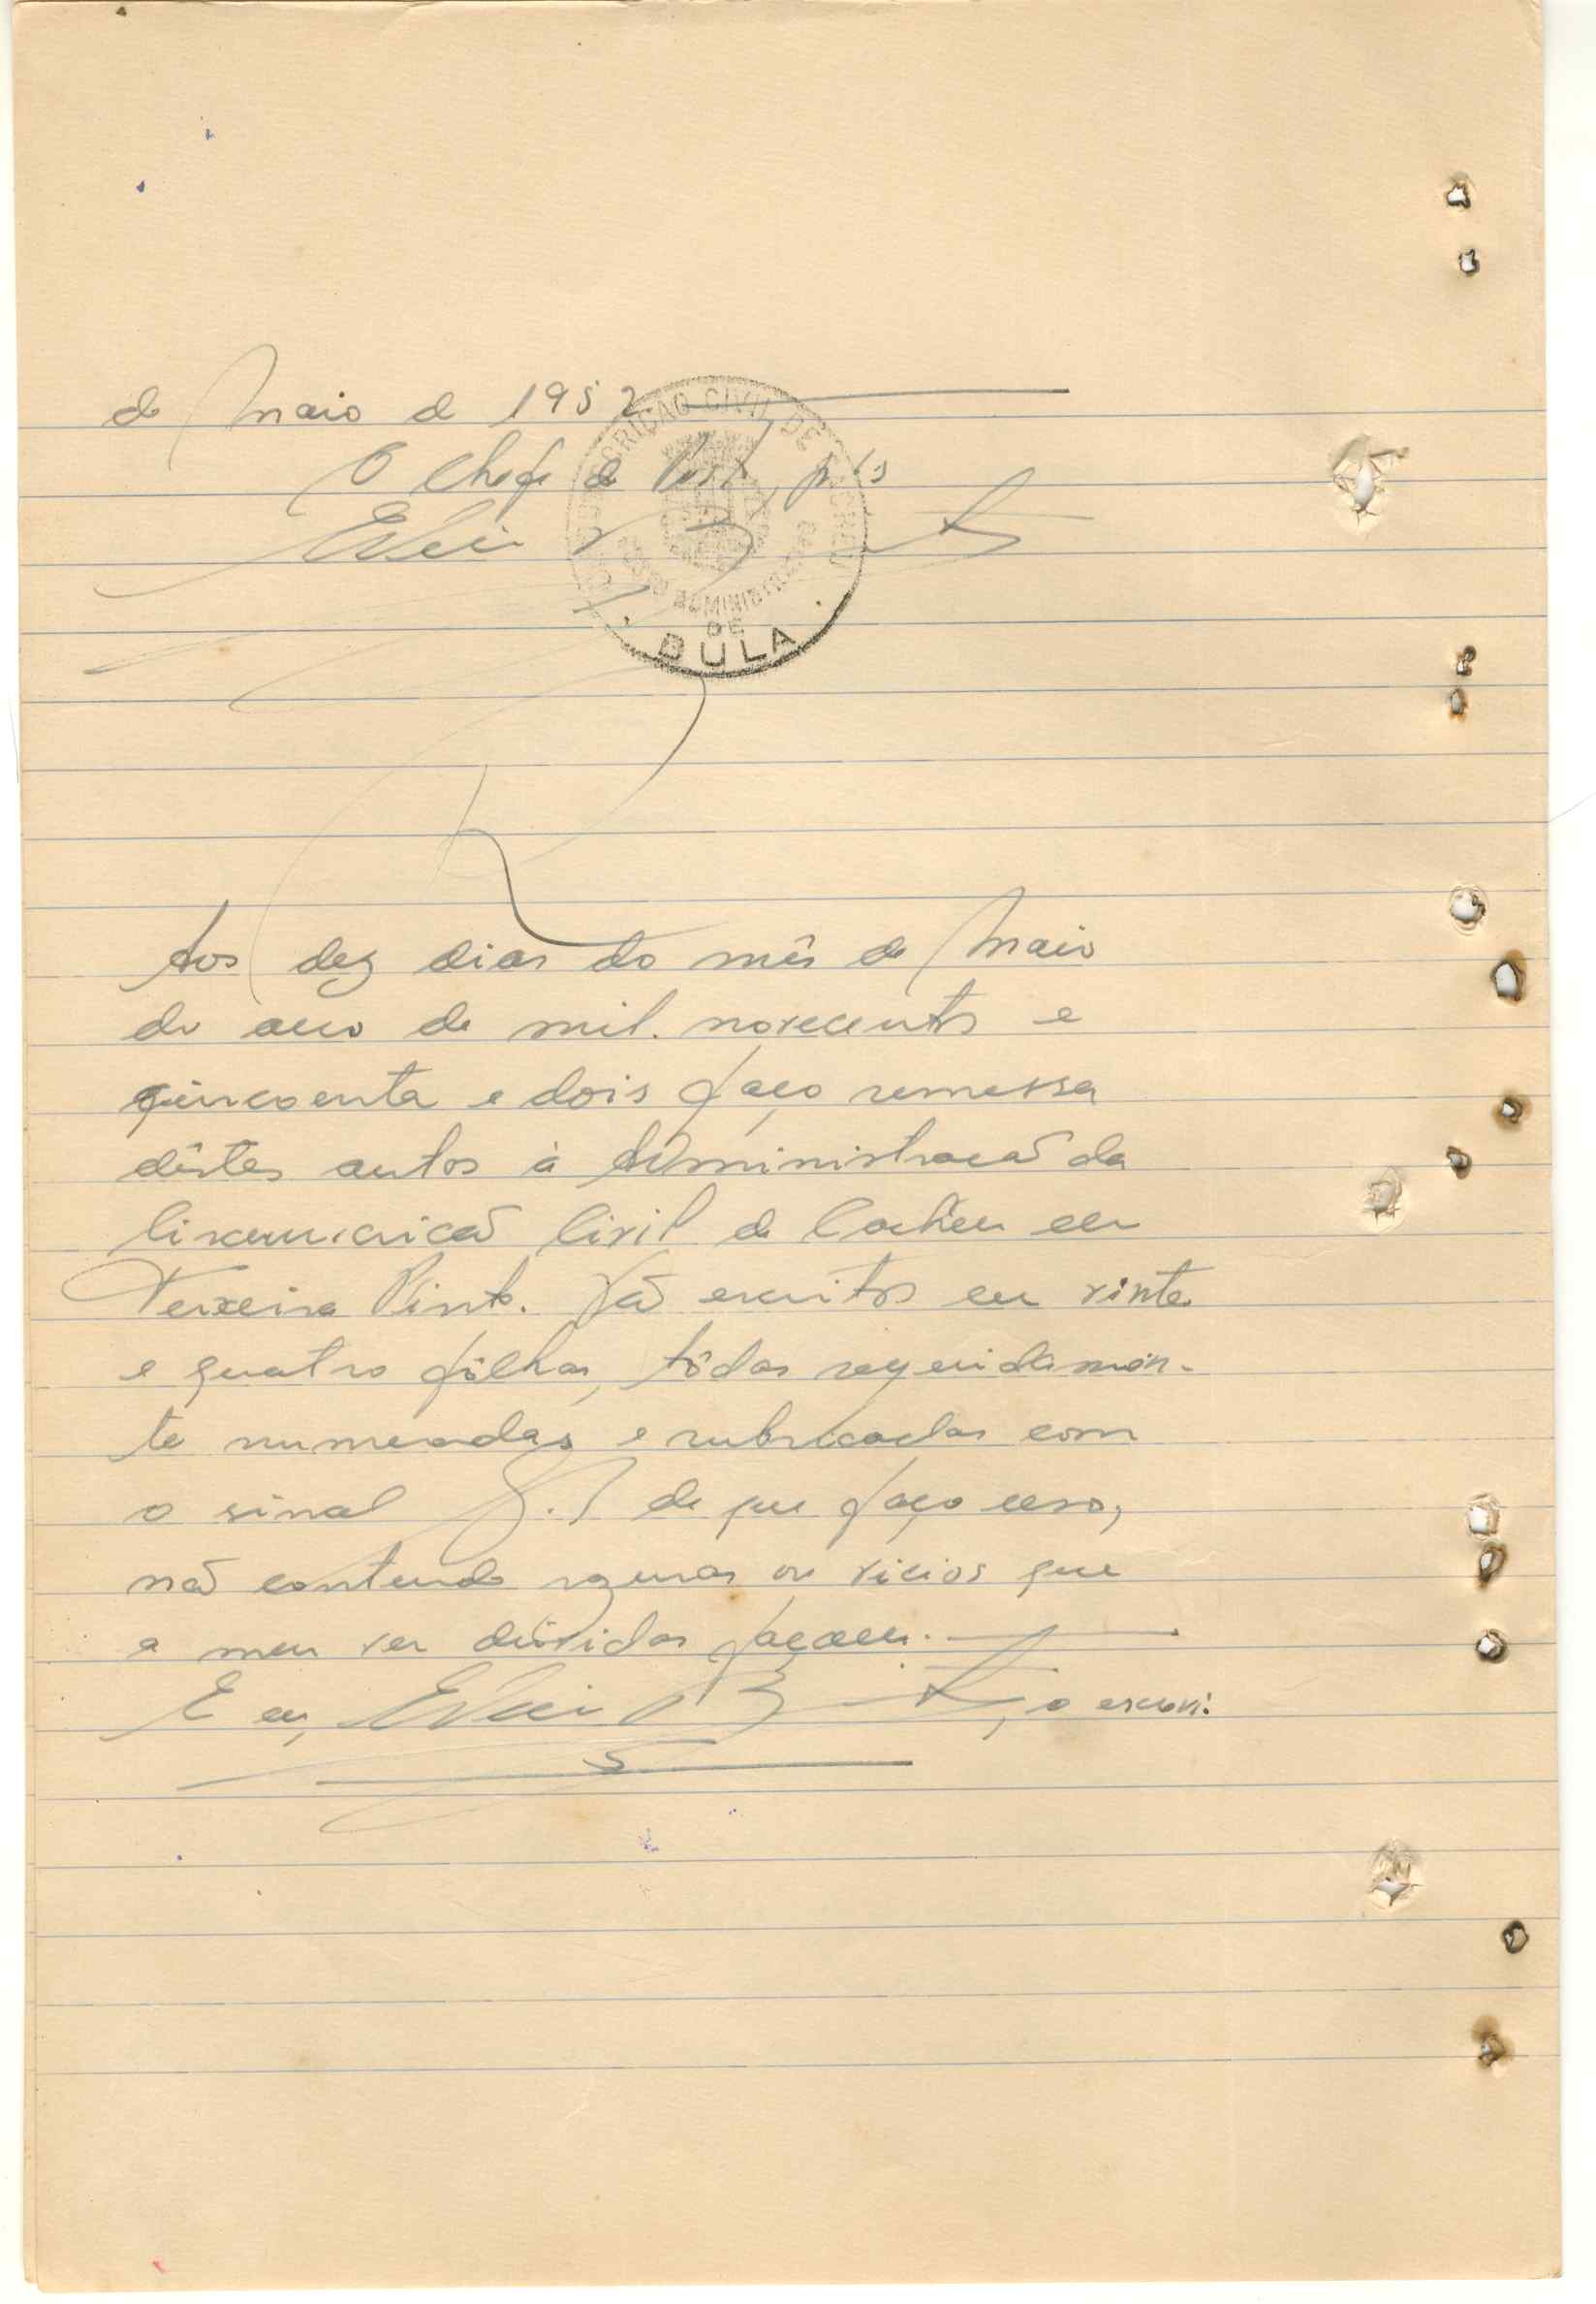 de Maio de 1952
O Chefe de Posto,
CIRCUNSCRIÇÃO CIVIL DE CACHEU
POSTO ADMINISTRATIVO
DE
BULA
Aos dez dias do mês de Maio
do ano de mil novecentos e
cincoenta e dois faço remessa
dêstes autos à Administração da
Circunscrição Civil de Cacheu em
Teixeira Pinto. Vão escritos em vinte
e quatro fôlhas, tôdas seguidamen-
te numeradas e rubricadas com
o sinal de que faço uso,
não contendo razuras ou vicios que
a meu ver dúvidas façam.
E eu, o escrevi.